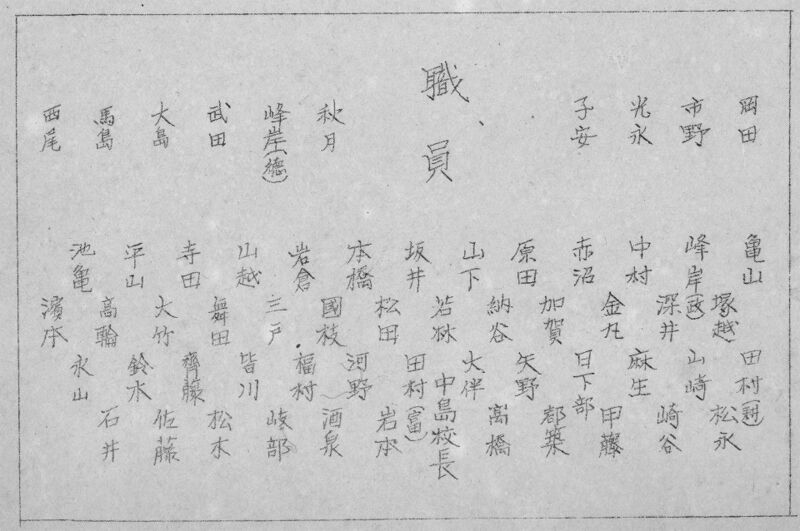 職、員
岡田
市野
光永
子安
秋月
峰岸(德)
武田
大島
馬島
西尾
亀山
田村(冠)
塚越
松永
峰岸(政)
山崎
深井
崎谷
中村
麻生
金丸
甲藤
赤沼
日下部
加賀
都築
原田
矢野
納谷
高橋
山下
大伴
若林
中島校長
坂井
田村(富)
松田
岩本
本橋
河野
國枝
酒泉
岩倉
福村
三戸
岐部
山越
皆川
舞田
松木
寺田
齊藤
大竹
佐藤
平山
鈴木
高輪
石井
池亀
永山
濱本